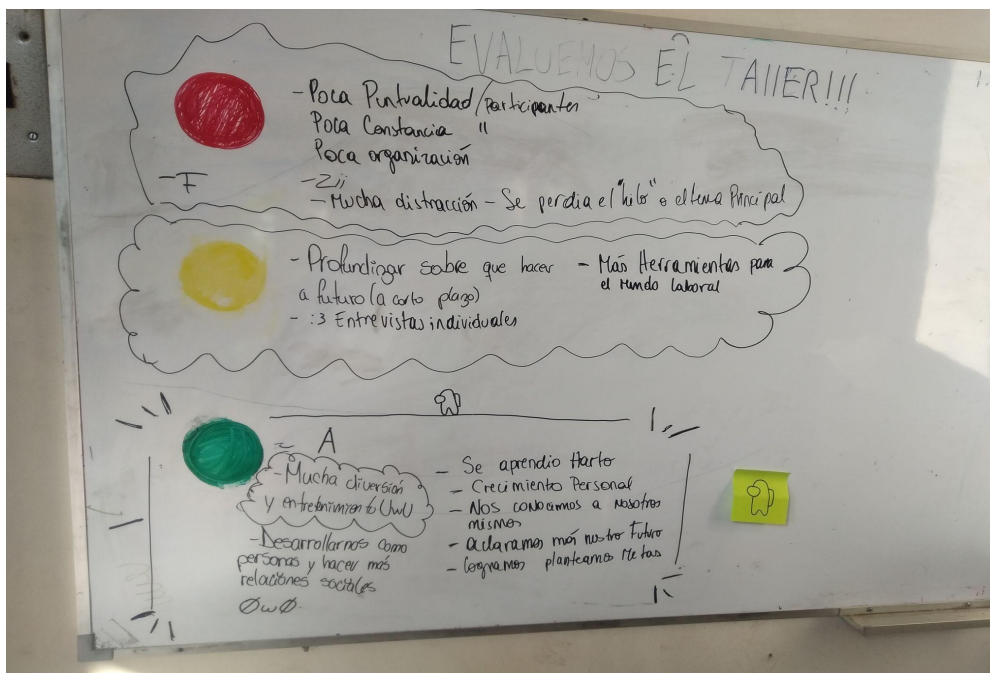 EVALUEMOS EL TALLER!!!
- Poca Puntualidad / Participantes
Poca Constancia "
Poca organización
- F
- Zii
- Mucha distracción - Se perdia el "hilo" o el tema Principal
- Profundizar sobre que hacer
a futuro (a corto plazo)
- :3 Entrevistas individuales
- Más Herramientas para
el Mundo laboral
A
- Mucha diversión
y entretenimiento UwU
- Desarrollarnos como
personas y hacer más
relaciones sociales
ØwØ
- Se aprendio Harto
- Crecimiento Personal
- Nos conocimos a Nosotros
mismos
- aclaramos más nustro Futuro
- logramos plantearnos Metas